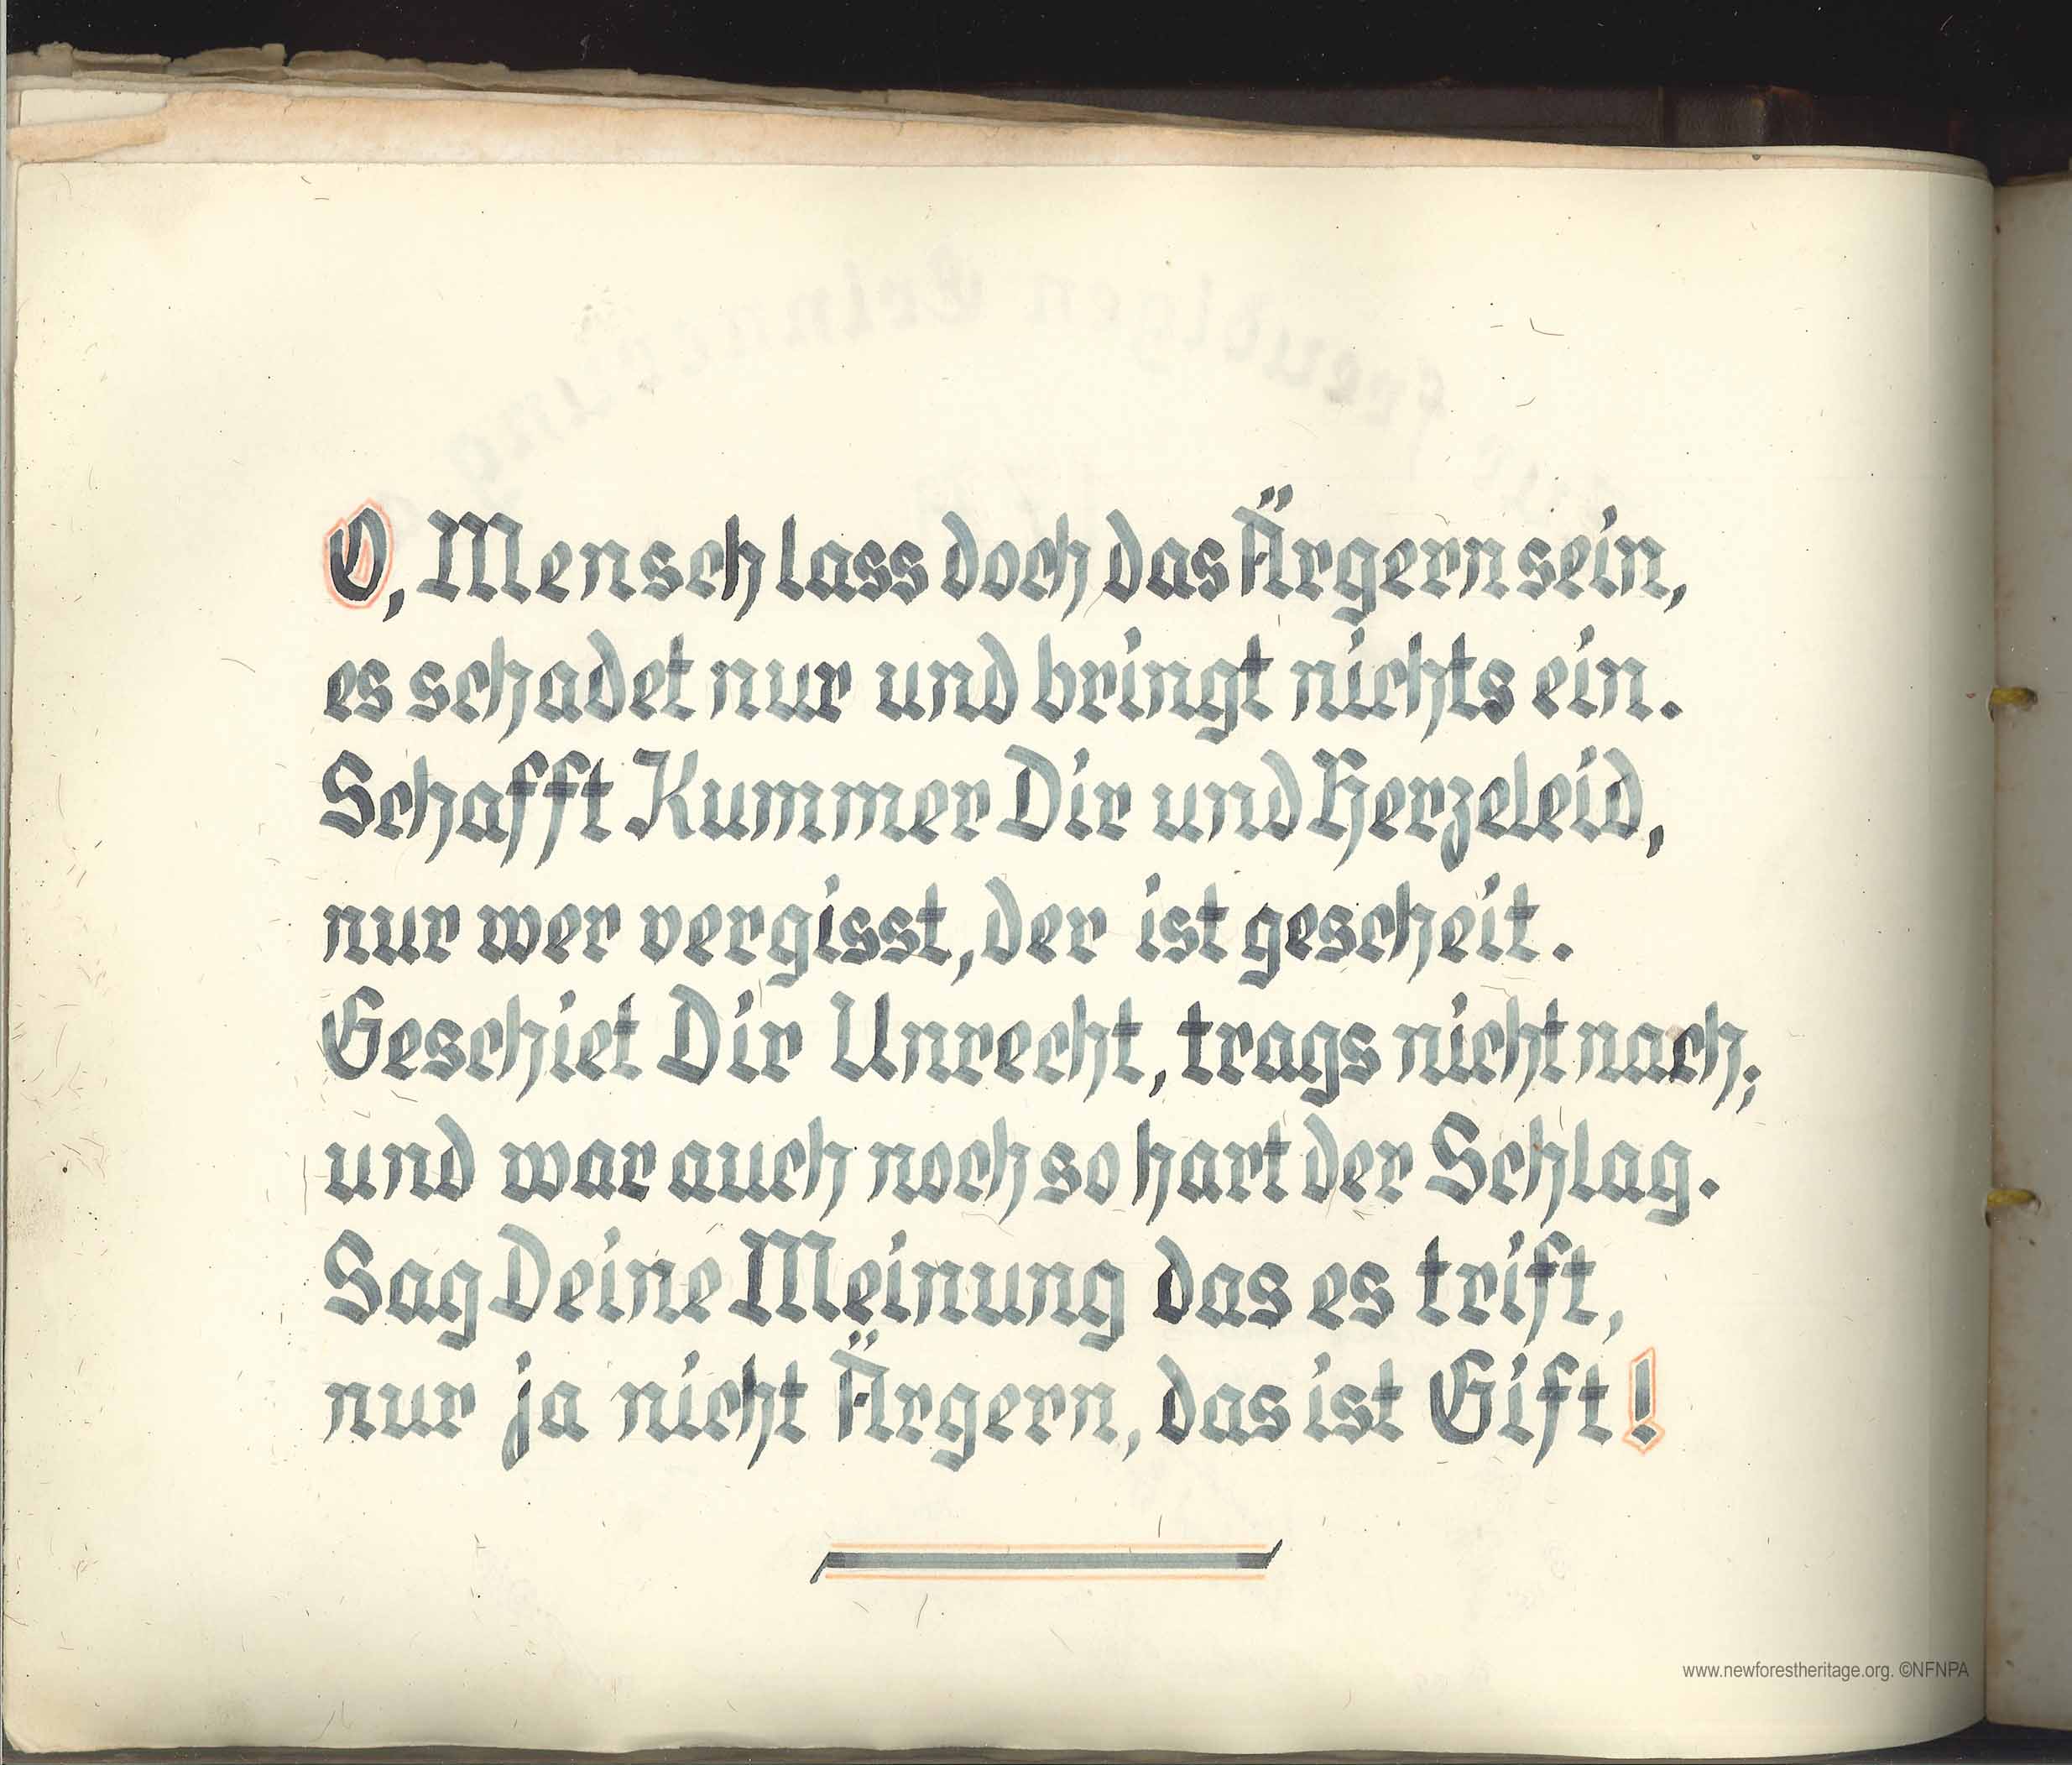 O, Mensch lass doch das Ärgern sein,
es schadet nur und bringt nichts ein.
Schafft Kummer Dir und Herzeleid,
nur wer vergisst, der ist gescheit.
Geschiet Dir Unrecht, trags nicht nach;
und war auch noch so hart der Schlag.
Sag Deine Meinung das es trift,
nur ja nicht Ärgern, das ist Gift!
www.newforestheritage.org. ©NFNPA